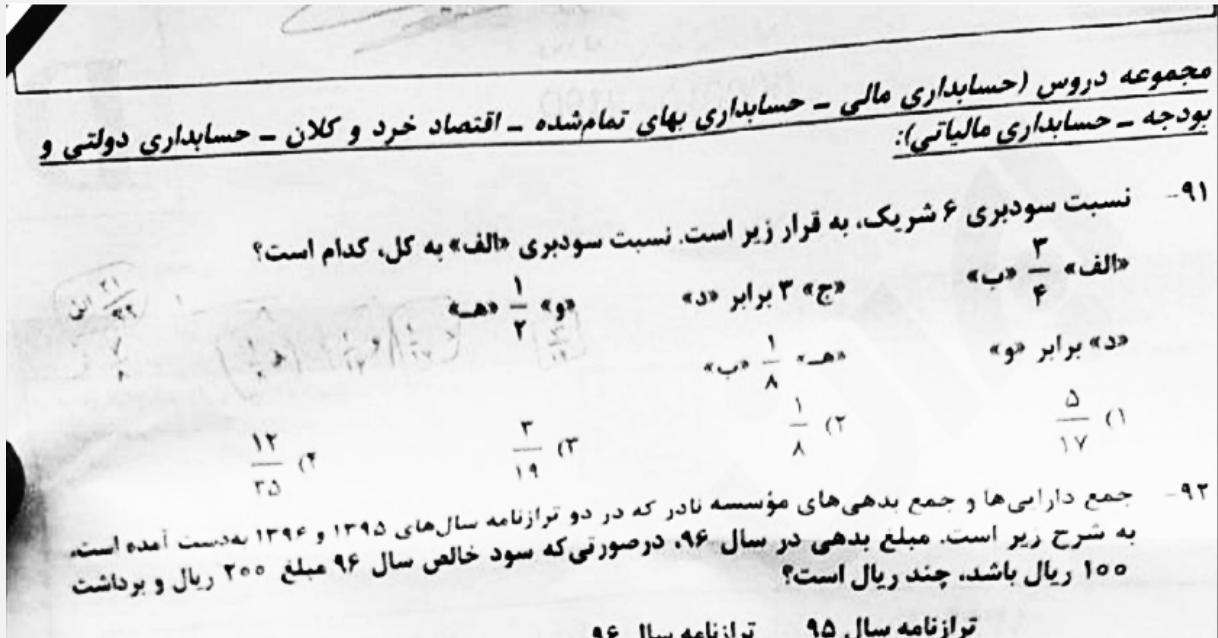 مجموعه دروس (حسابداری مالی ـ حسابداری بهای تمام‌شده ـ اقتصاد خرد و کلان ـ حسابداری دولتی و
بودجه ـ حسابداری مالیاتی):
۹۱- نسبت سودبری ۶ شریک، به قرار زیر است. نسبت سودبری «الف» به کل، کدام است؟
«الف» ۳/۴ «ب» «ج» ۳ برابر «د» «و» ۱/۲ «هـ»
«د» برابر «و» «هـ» ۱/۸ «ب»
۱) ۵/۱۷ ۲) ۱/۸ ۳) ۳/۱۹ ۴) ۱۲/۳۵
۹۲- جمع دارایی‌ها و جمع بدهی‌های مؤسسه نادر که در دو ترازنامه سال‌های ۱۳۹۵ و ۱۳۹۶ به‌دست آمده است،
به شرح زیر است. مبلغ بدهی در سال ۹۶، درصورتی‌که سود خالص سال ۹۶ مبلغ ۲۰۰ ریال و برداشت
۱۰۰ ریال باشد، چند ریال است؟
ترازنامه سال ۹۵ ترازنامه سال ۹۶